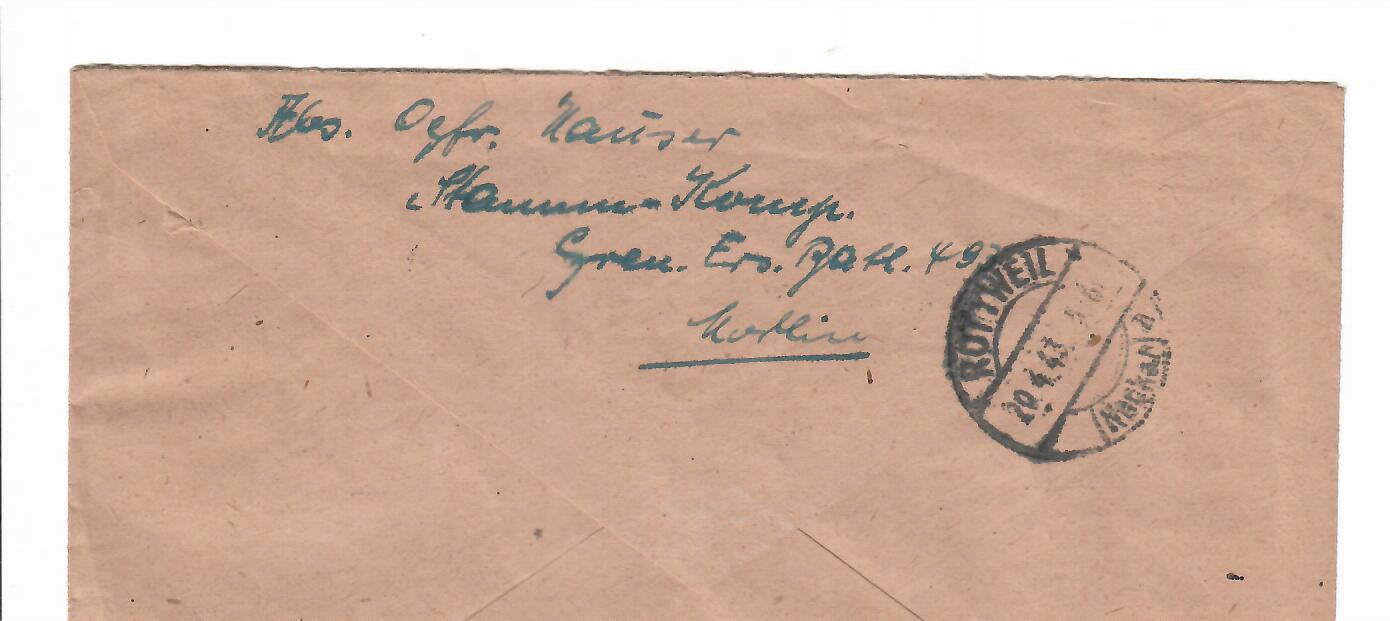 Abs. Ogfr. Hauser
Stamm-Komp.
Gren. Ers. Batl. 493
Modlin
ROTTWEIL
20.4.43
(Neckar)